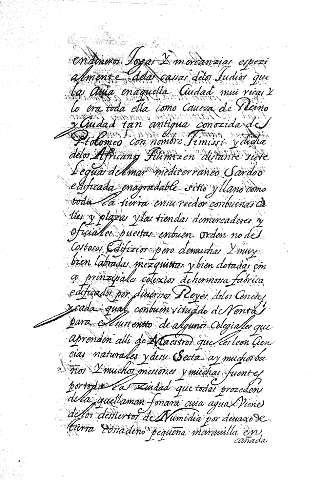 en dineros Joyas Y mercanzias espezi
almente delas casas delos Judios que
las avia enaquella Ciudad mui ricas Y
lo era toda ella como Cavesa de Reyno
y Ciudad tan antigua conozida de
Ptolomeo con nombre Timissi y
delos Africanos distante siete
Leguas del mar mediterraneo Sardoo
edificada enagradable sitio y llano como
toda la tierra ensu rededor conbuenas ca
lles y plazas y las tiendas demercaderes y
ofiziales puestas enbuen orden no de
Costosos Edifizios pero demuchas Y muy
bien labradas mezquittas y bien dotadas cin
co prinzipales colexios de hermosa fabrica
edificados por diversos Reyes delos
cada qual conbuen situado de Rentas
para elsustento de algunos Colegiales que
aprenden alli de Maestros que leen Cien
cias naturales y desu Secta ay muchos ba
ños Y muchos mesones y muchas fuentes
por toda la Ciudad que todas proceden
de la que llaman cuia agua Viene
delos desiertos de Numidia por debaxo de
tierra con no pequeña maravilla en
cañada